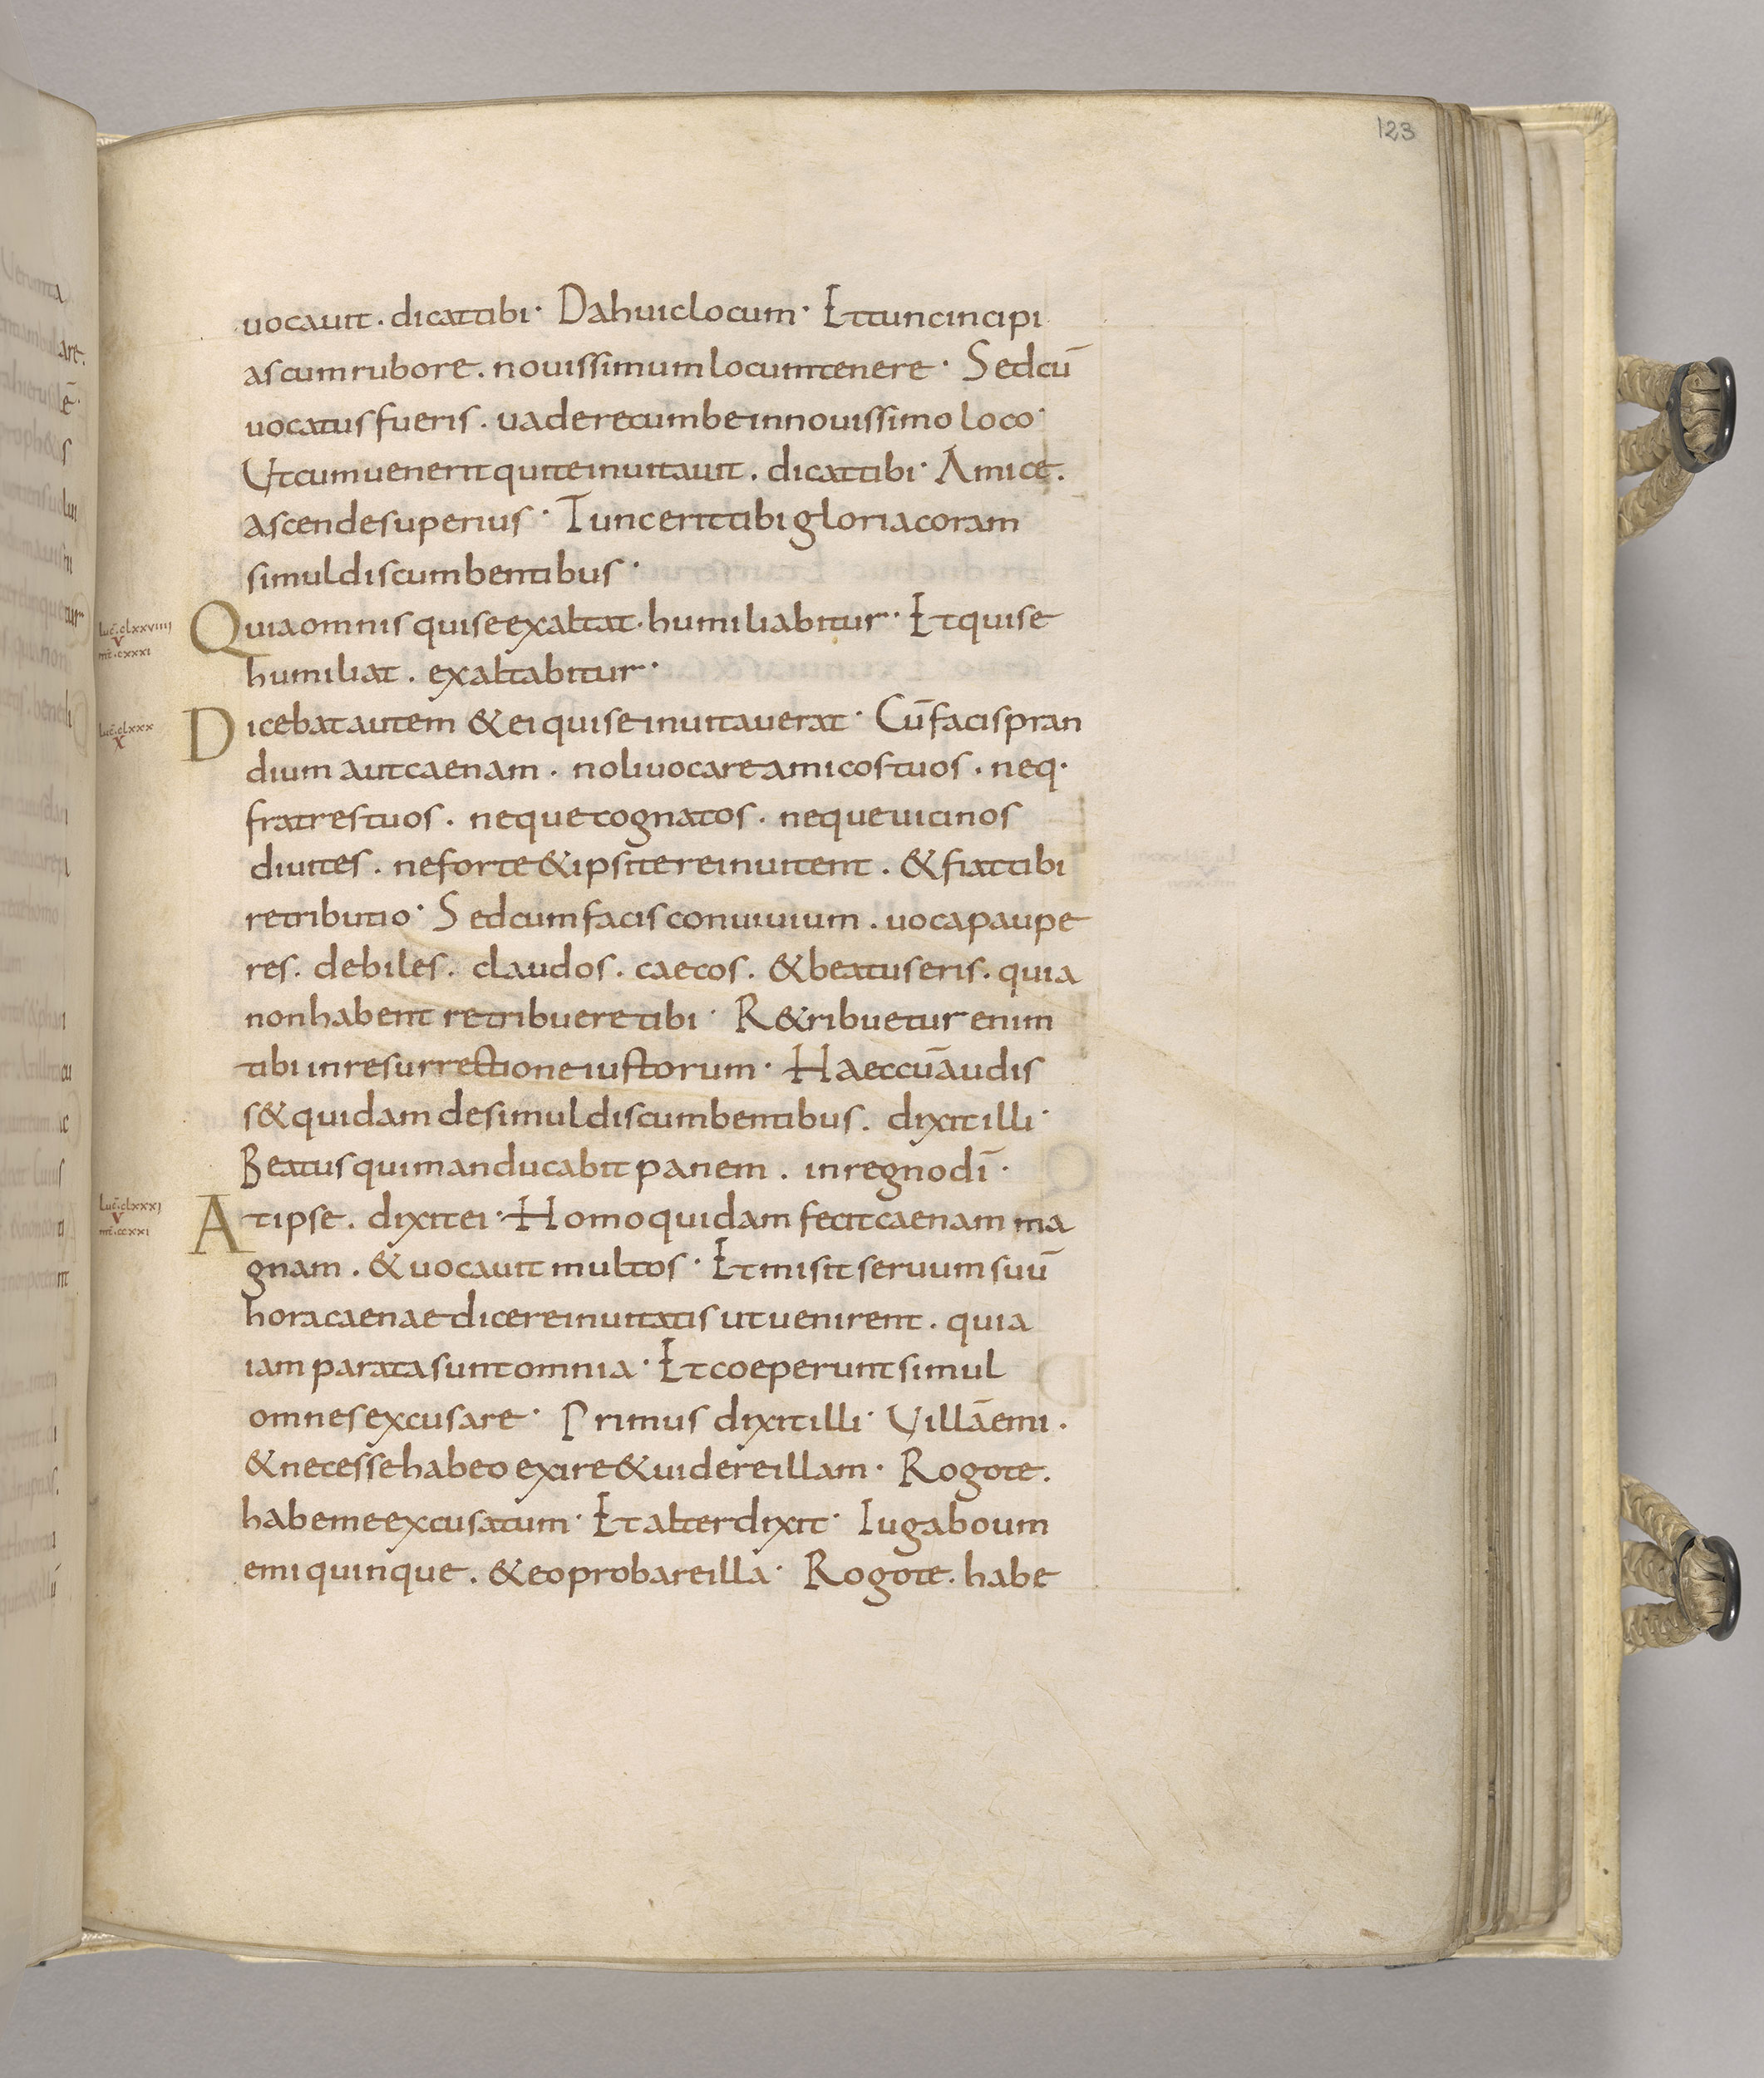 123
uocauit . dicat tibi · Da huic locum · Et tunc incipi
as cum rubore . nouissimum locum tenere · Sed cū
uocatus fueris . uade recumbe in nouissimo loco·
Ut cum uenerit qui te inuitauit . dicat tibi · Amice .
ascende superius · Tunc erit tibi gloria coram
simul discumbentibus ·
luc̄. clxxviiii
v
mt̄. cxxxi
Quia omnis qui se exaltat · humiliabitur · Et qui se
humiliat . exaltabitur ·
luc̄. clxxx
x
Dicebat autem & ei qui se inuitauerat · Cū facis pran
dium aut caenam . noli uocare amicos tuos . neq·
fratres tuos . neque cognatos . neque uicinos
diuites . ne forte & ipsi te reinuitent . & fiat tibi
retributio · Sed cum facis conuiuium . uoca paupe
res . debiles . claudos . caecos . & beatus eris . quia
non habent retribuere tibi · R&ribuetur enim
tibi in resurrectione iustorum · Haec cū audis
s& quidam de simul discumbentibus . dixit illi ·
Beatus qui manducabit panem . in regno dī ·
luc̄. clxxxi
v
mt̄. ccxxi
At ipse . dixit ei · Homo quidam fecit caenam ma
gnam . & uocauit multos · Et misit seruum suū
hora caenae dicere inuitatis ut uenirent . quia
iam parata sunt omnia · Et coeperunt simul
omnes excusare · Primus dixit illi · Uillā emi .
& necesse habeo exire & uidere illam · Rogo te .
habe me excusatum · Et alter dixit · Iuga boum
emi quinque . & eo probare illa · Rogo te . habe